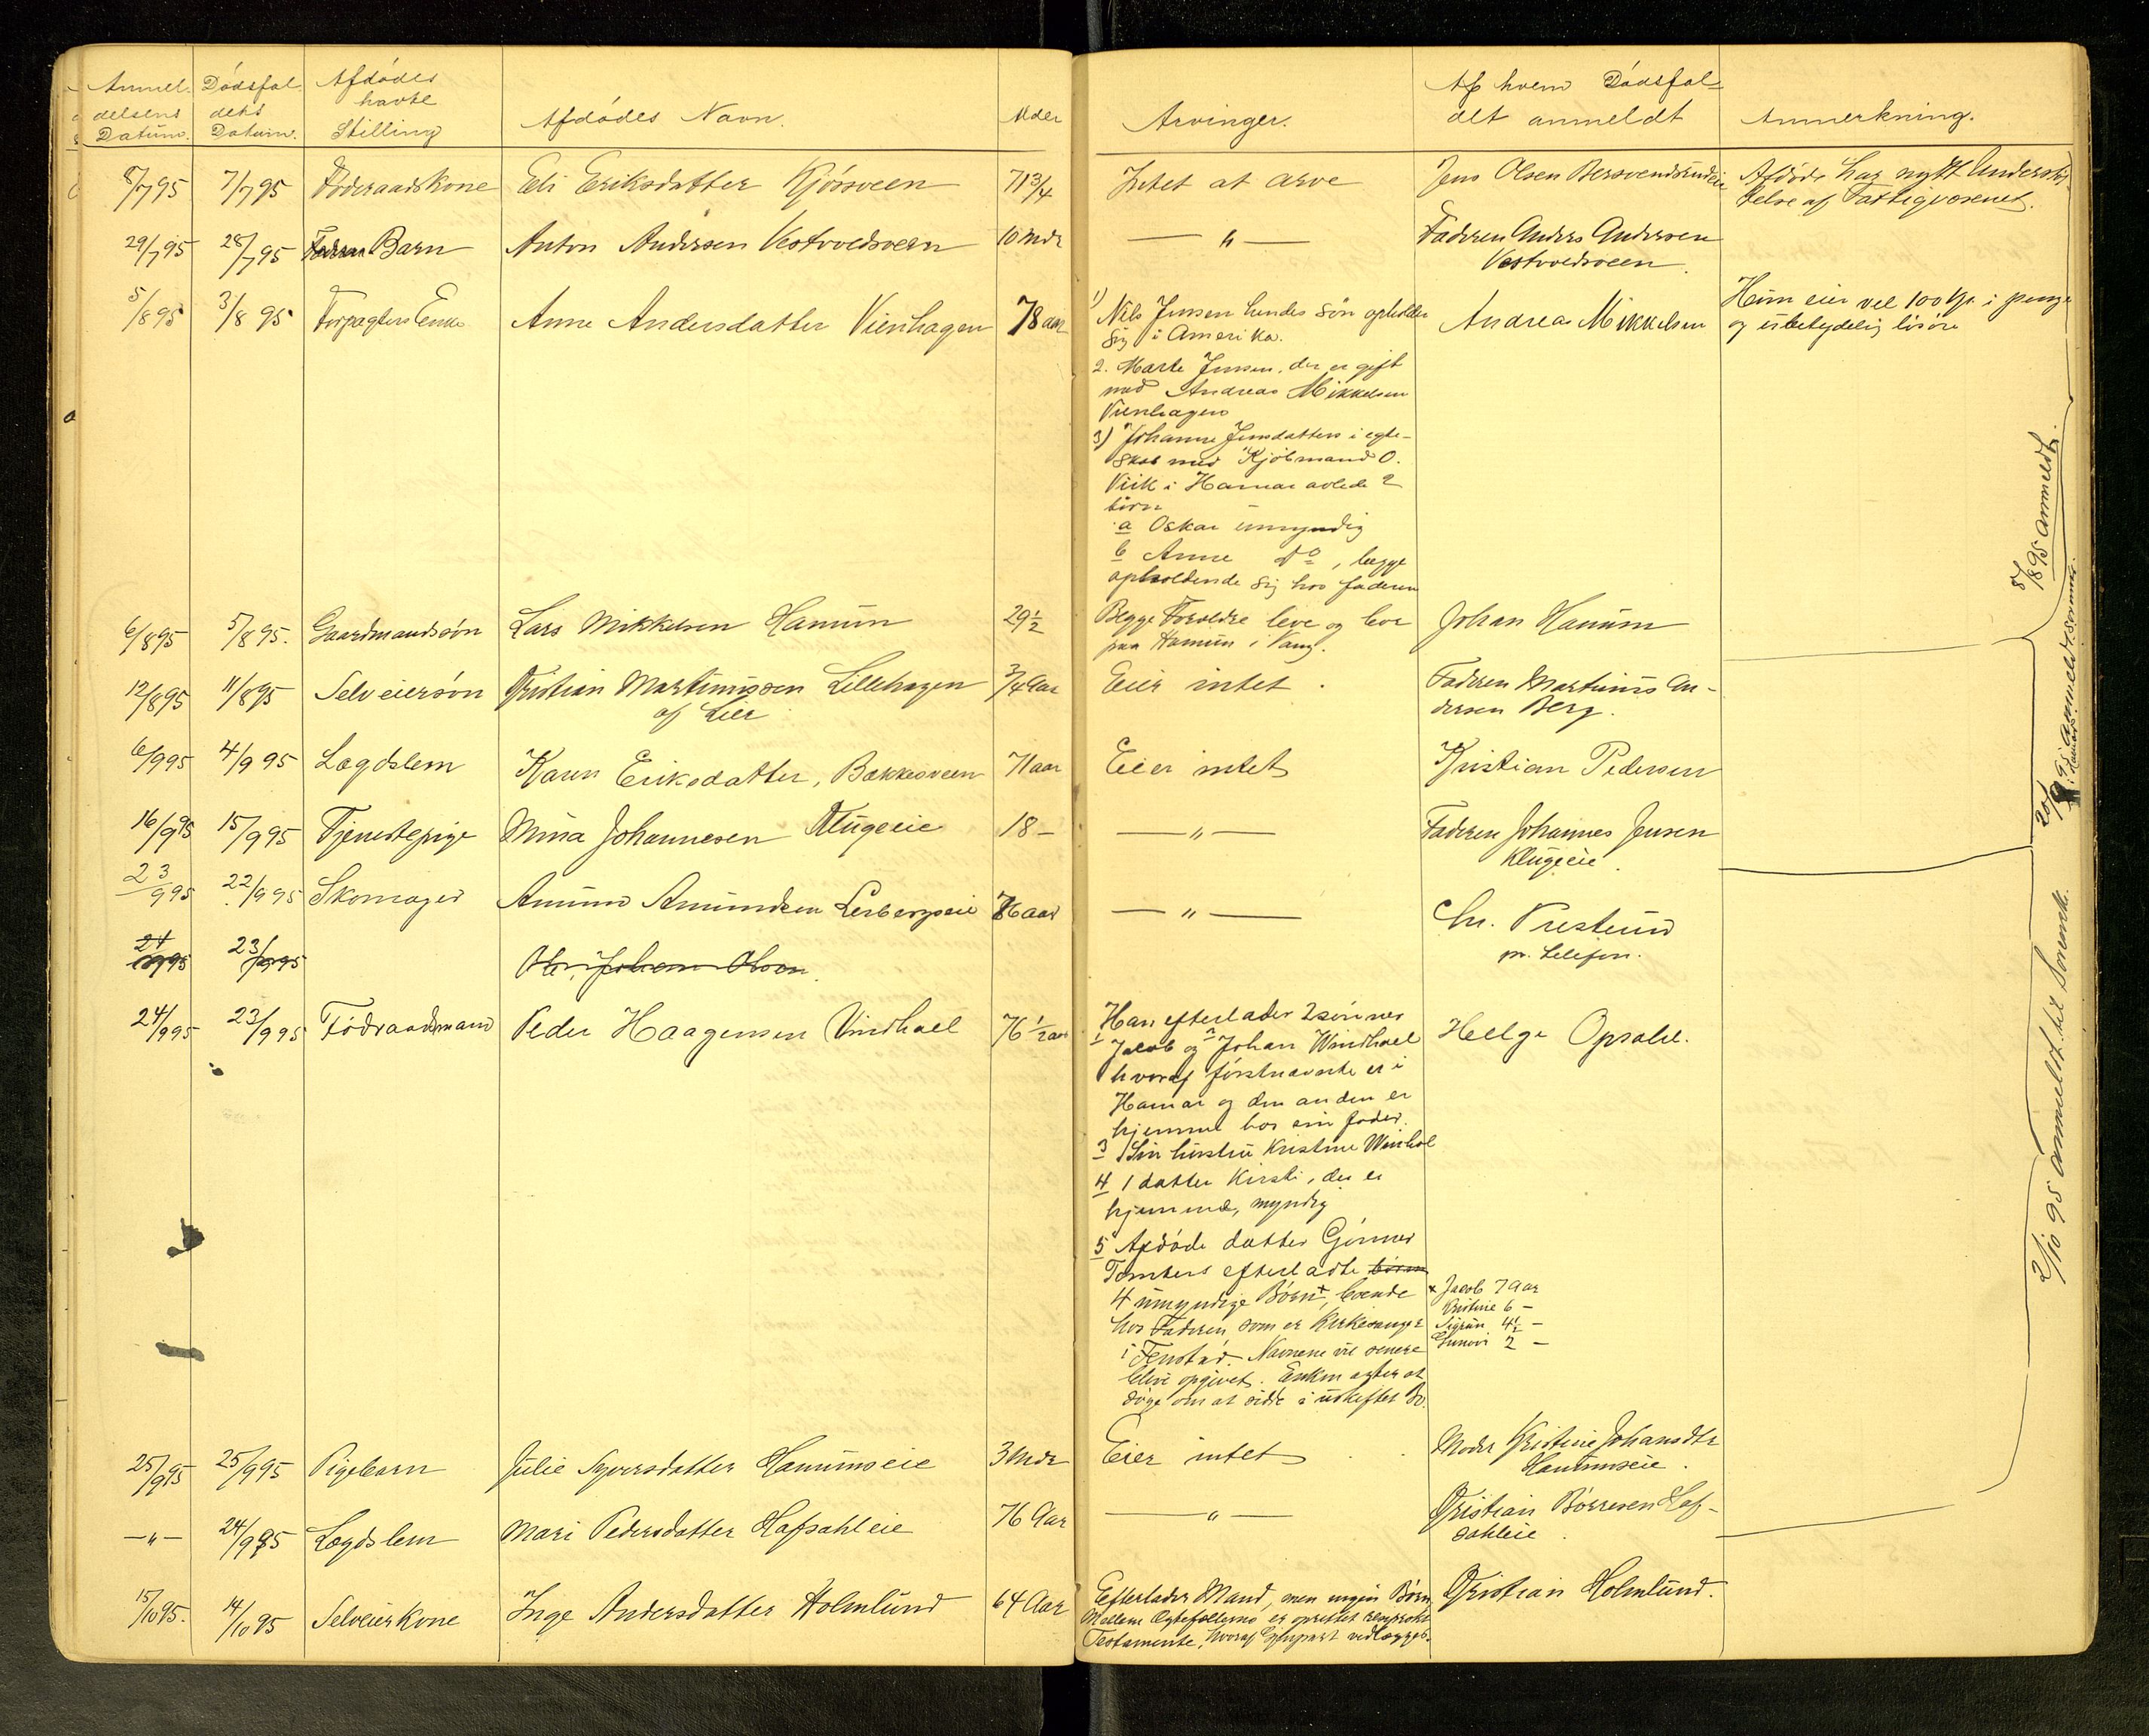 Anmel-
delsens
Datum.
Dødsfal-
dets
Datum.
Afdødes
havte
Stilling
Afdødes Navn.
Alder
Arvinger.
Af hvem Dødsfal-
det anmeldt
Anmerkning.
8/7 95 7/7 95 Føderaadskone Eli Eriksdatter Kjøsveen 71 3/4 Intet at arve Jens Olsen Bersvendsrudeie Afdøde har nydt Understøt-
telse af Fattigvæsenet.
29/7 95 28/7 95 Barn Anton Andersen Vestvoldsveen 10 Mdr — " — Faderen Anders Andersen
Vestvoldsveen.
5/8 95 3/8 95 Forpagters Enke Anne Andersdatter Vienhagen 78 aar Andreas Mikkelsen
1) Nils Jensen hendes Søn opholder
sig i Amerika.
2. Marte Jensen, der er gift
med Andreas Mikkelsen
Vienhagen
3) Johanne Jensdatter i egte-
skab med Kjøbmand O.
Viik i Hamar avlede 2
børn
a Oskar umyndig
b Anne do, begge
opholdende sig hos faderen
Hun eier vel 100 Kr. i penge
og ubetydelig løsøre
6/8 95 5/8 95. Gaardmandssøn Lars Mikkelsen Hamum 29 1/2 Begge Forældre leve og bor
paa Hamum i Vang.
Johan Hamum
12/8 95 11/8 95 Selveiersøn Kristian Martinussen Lillehagen
af Lier
3/4 Aar Eier intet. Faderen Martinus An-
dersen Berg.
6/9 95 4/9 95 Lægdslem Karen Eriksdatter, Bakkesveen 71 aar Eier intet Kristian Pedersen
16/9 95 15/9 95 Tjenestepige Mina Johannesen Klugeeie 18 – — " — Faderen Johannes Jensen
Klugeeie.
23/9 95 22/9 95 Skomager Amund Amundsen Lesbergseie 76 aar — " — Chr. Prestrud
pr. telefon.
24/9 95 23/9 95 Johan Olsen
24/9 95 23/9 95 Føderaadsmand Peder Haagensen Vindhoel 76 1/2 aar Helge Opsahl.
Han efterlader 2 sønner
1 Jacob og 2 Johan Windhoel
hvoraf førstnævnte er i
Hamar og den anden er
hjemme hos sin fader.
3 Sin hustru Kristine Winhol
4 1 datter Kirsti, der er
hjemme, myndig
5 Afdøde datter Gunner
Tomters efterladte børn
4 umyndige Børn x, boende
hos Faderen, som er Kirkesanger
i Tenstad. Navnene vil senere
blive opgivet. Enken agter at
søge om at sidde i uskiftet Bo.
x Jacob 7 Aar
Kristine 6 –
Sigrun 4 1/2 –
Gunvor 2 –
25/9 95 25/9 95 Pigebarn Julie Syversdatter Hamumseie 3 Mdr Eier intet Moder Kristine Johansdtr
Hamumseie.
— " — 24/9 95 Lægdslem Mari Pedersdatter Hafsahleie 76 Aar — " — Kristian Børresen Haf-
sahleie.
15/10 95. 14/10 95 Selveierkone Inge Andersdatter Holmlund 64 Aar Efterlader Mand, men ingen Børn.
Mellem Ægtefællerne er oprettet reciprokt
Testamente, hvoraf Gjenpart vedlægges.
Kristian Holmlund.
5/8 95 anmeldt.
20/9 95 Anmeldt Sorenskr.
i Hamar
2/10 95 anmeldt til Sorenskr.